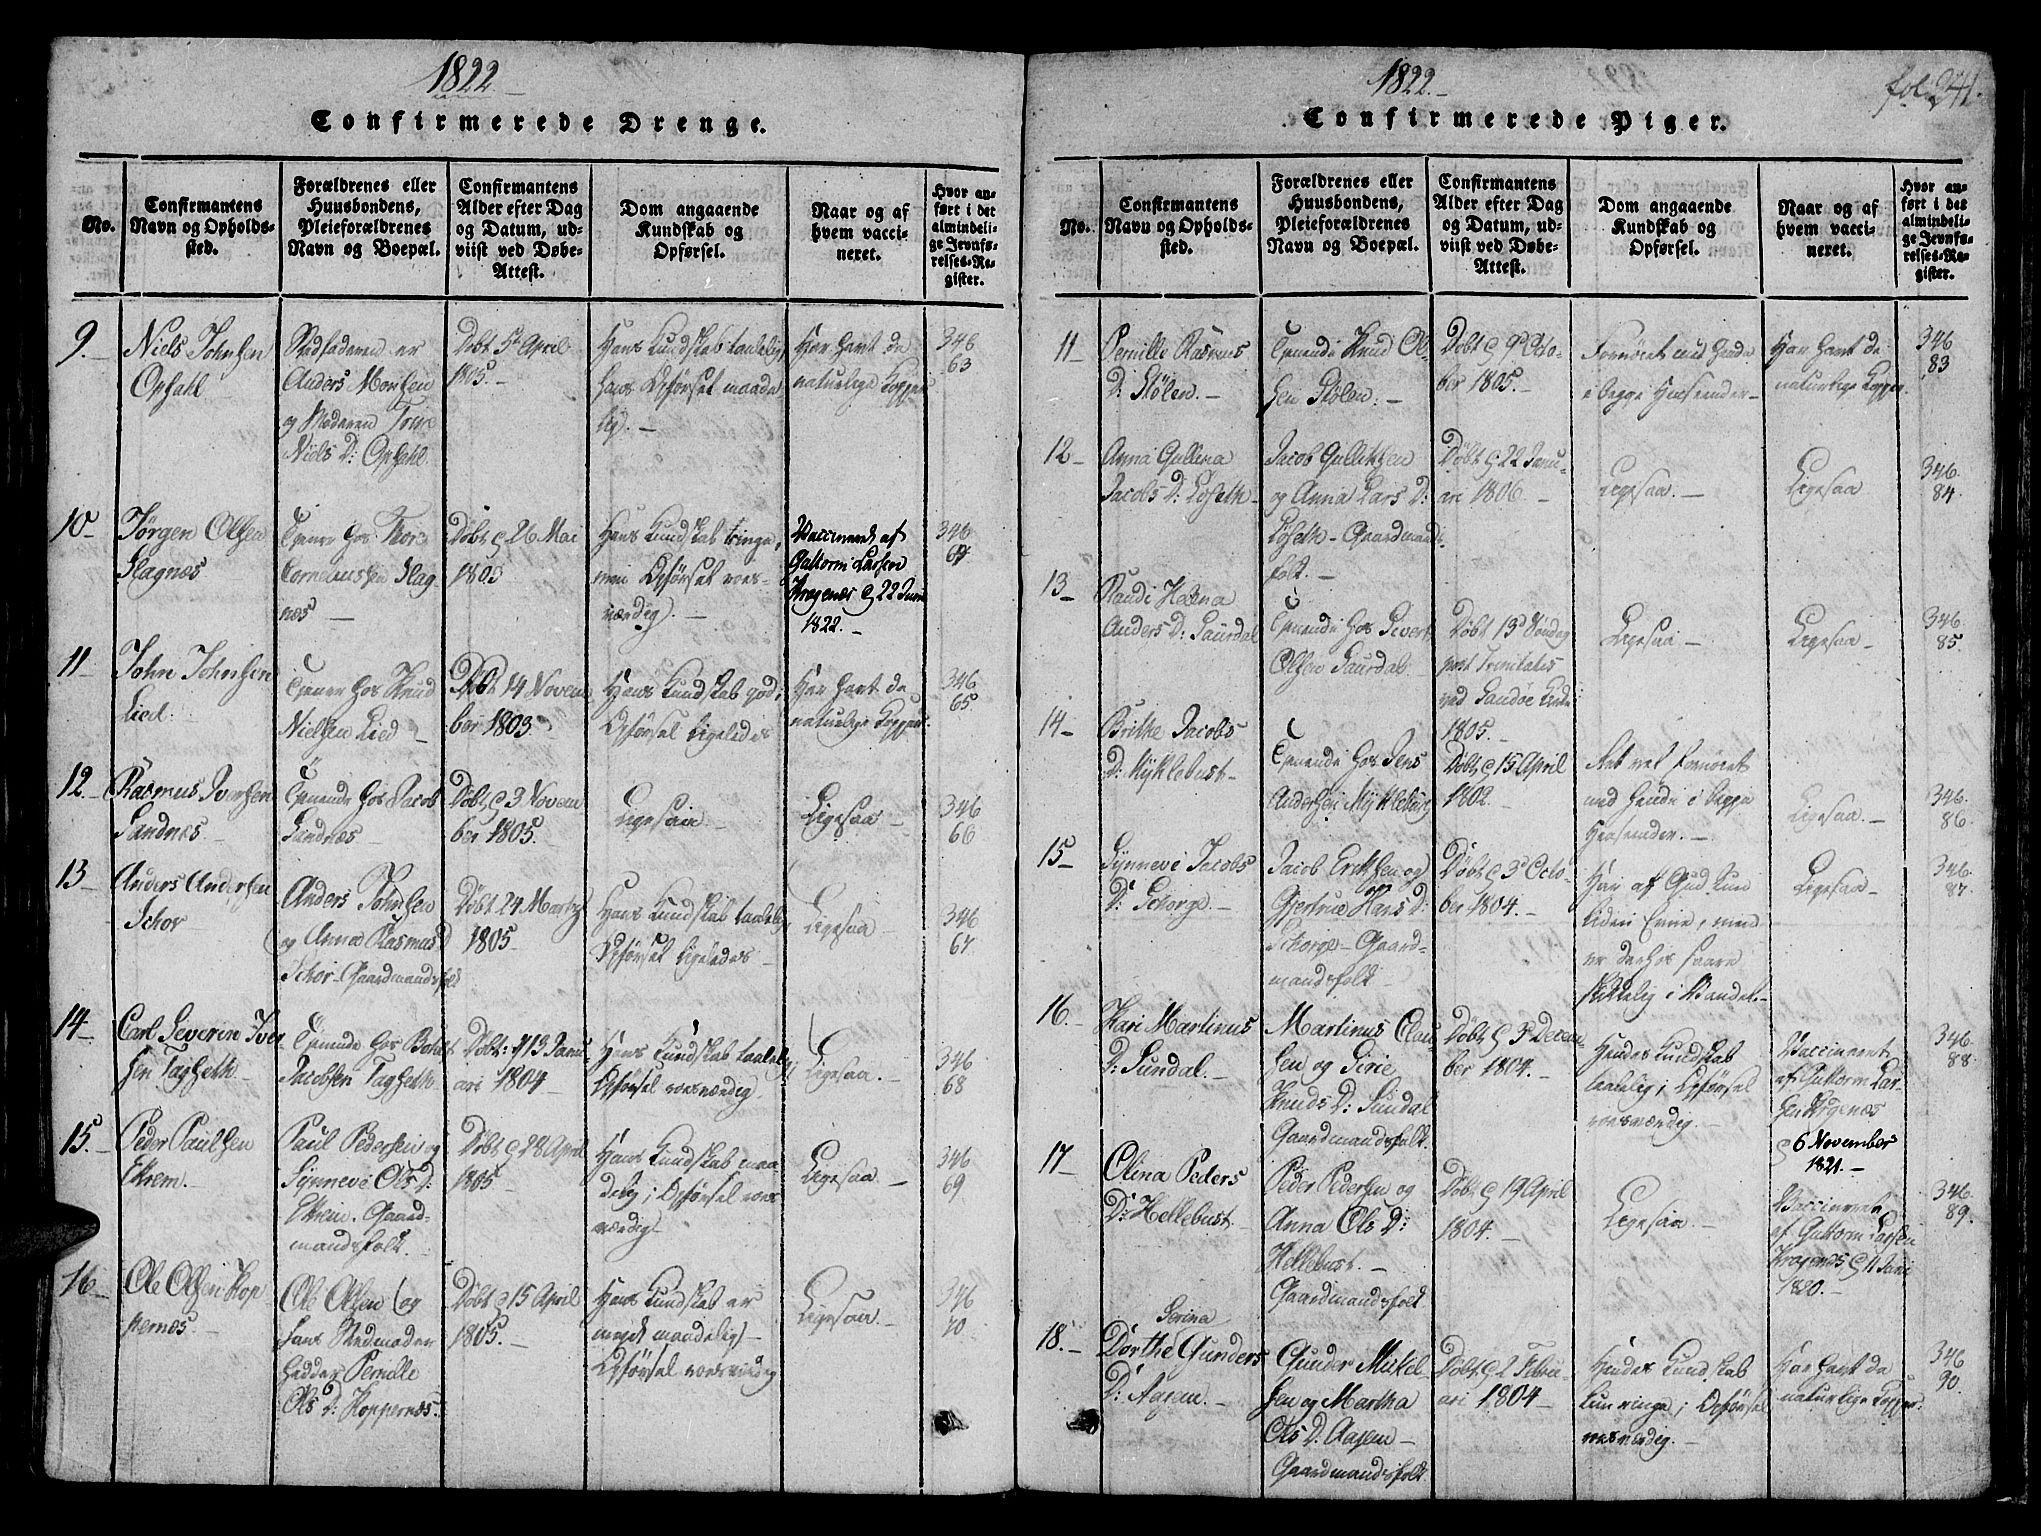 1822
Confirmerede Drenge.
No.
Confirmantens
Navn og Opholds-
sted.
Forældrenes eller
Huusbondens,
Pleieforældrenes
Navn og Boepæl.
Confirmantens
Alder efter Dag
og Datum, ud-
viist ved Døbe-
Attest.
Dom angaaende
Kundskab og
Opførsel.
Naar og af
hvem vacci-
neret.
Hvor an-
ført i det
almindeli-
ge Jevnfø-
relses-Re-
gister.
9.
Niels Johnsen
Opsahl
Stedfaderen er
Anders Monsen
og Moderen
Niels D: Opsahl.
Døbt 5t April
1805.
Hans Kundskab taalelig
hans Opførsel maade
lig.
Har havt de
naturlige Kopper
346
63
10
Jørgen Olsen
Slagnes
Tjener hos Thor
Cornelíussen Slag
nes
Døbt d 26 Mai
1803
Hans Kundskab ringe,
men Opførsel roes-
værdig.
Vaccineret af
Guttorm Larsen
Kragenæs d 22 Juni
1822.
346
64
11
John Johnsen
Lied.
Tjener hos Knud
Nielsen Lied
Døbt 14 Novem
ber 1803.
Hans Kundskab god;
Opførsel ligeledes
Har havt de
naturlige Kopper
346
65
12
Rasmus Iversen
Sandnes
Tjenende hos Jacob
Sandnæs
Døbt d 3 Novem
ber 1805.
Ligesaa
Ligesaa
346
66
13
Anders Andersen
Schor
Anders Johnsen
og Anna Rasmus D
Schor Gaardmandsfolk
Døbt 24 Martz
1805
Hans Kundskab taalelig
Opførsel ligeledes
Ligesaa
346
67
14
Carl Severin Iver
sen Tagseth
Tjenende hos
Jacobsen Tagseth
Døbt: 13 Janu-
ari 1804
Hans Kundskab taalelig
Opførsel roesværdig
Ligesaa.
346
68
15.
Peder Paulsen
Ekrem.
Paul Pedersen og
Synneve Ols D:
Ekrem. Gaard-
mandsfolk.
Døbt d 28 April
1805
Hans Kundskab maa
delig; Opførsel roes
værdig
Ligesaa
346
69
16
Ole Olsen Kop
pernes
Ole Olsen og
hans Stedmoder
hedder Pernille
Ols D: Koppernæs.
Døbt d 15 April
1805.
Hans Kundskab er
meget maadelig
Opførsel roesværdig
Ligesaa
346
70
1822.
fol 241.
Confirmerede Piger.
No.
Confirmantens
Navn og Opholds-
sted.
Forældrenes eller
Huusbondens,
Pleieforældrenes
Navn og Boepæl.
Confirmantens
Alder efter Dag
og Datum, ud-
viist ved Døbe-
Attest.
Dom angaaende
Kundskab og
Opførsel.
Naar og af
hvem vacci-
neret.
Hvor an-
ført i det
almindeli-
ge Jevnfø-
relses-Re-
gister.
11
Pernille Rasmus
D: Stølen.
Tjenende Knud Ol-
sen Stølen.
Døbt d 9 Octo-
ber 1805.
Fornøiet med hende
i begge Henseender
Har havt de
naturlige Kopper.
346
83
12
Anna Gullina
Jacobs D: Løseth
Jacob Gullitsen
og Anna Lars D:
Løseth Gaardmands
folk.
Døbt d 22 Janu-
ari 1806.
Ligesaa.
Ligesaa
346.
84
13
Randi Helena
Anders D: Saurdal
Tjenende hos Sivert
Olsen Saurdal
Døbt 13 Søndag
post Trinitatis
ved Sandøe Kirke
1805.
Ligesaa
Ligesaa
346
85.
14
Brithe Jacobs
D: Mÿklebust
Tjenende hos Jens
Andersen Mÿklebust
Døbt d 15 April
1802.
Ret vel Fornøiet
med hende i begge
Henseender.
Ligesaa.
346.
86
15
Sÿnneve Jacobs
D: Schorge
Jacob Ericksen og
Gjertrue Hans D:
Schorge Gaard-
mandsfolk.
Døbt d 3 Octo-
ber 1804.
Har af Gud kun
liden Evne, men
er derhos saare
skikkelig i Vandel.
Ligesaa
346.
87
16.
Kari Martinus
D: Sundal.
Martinus Clau-
sen og Sirie
Knuds D: Sundal
Gaardmandsfolk.
Døbt d 3 Decem-
ber 1804.
Hendes Kundskab
taalelig; Opførsel
roesværdig.
Vaccineret
af Guttorm Lar-
sen Kragenæs
d 6 November
1821.
346.
88
17
Olina Peders
D: Hellebust.
Peder Pedersen og
Anna Ols D:
Hellebust.
Gaardmandsfolk
Døbt d 19 April
1804.
Ligesaa
Vaccineret
af Guttorm Larsen
Kragenæs d 11 Juni
1820.
346.
89.
18.
Serina
Dorthe Gunders
D: Aarem.
Gunder Mikel
sen og Martha
Ols D. Aarem
Gaardmandsfolk
Døbt d 2 Febru-
ari 1804.
Hendes Kundskab
kun ringe; Opførsel
roesværdig.
Har havt de
naturlige Kopper
346
90.